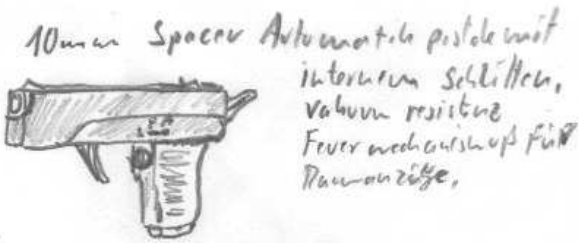 10mm Spacer Automatik pistole mit
internem Schlitten,
vakuum resistenz
Feuermechanismuß für
Raumanzüge.